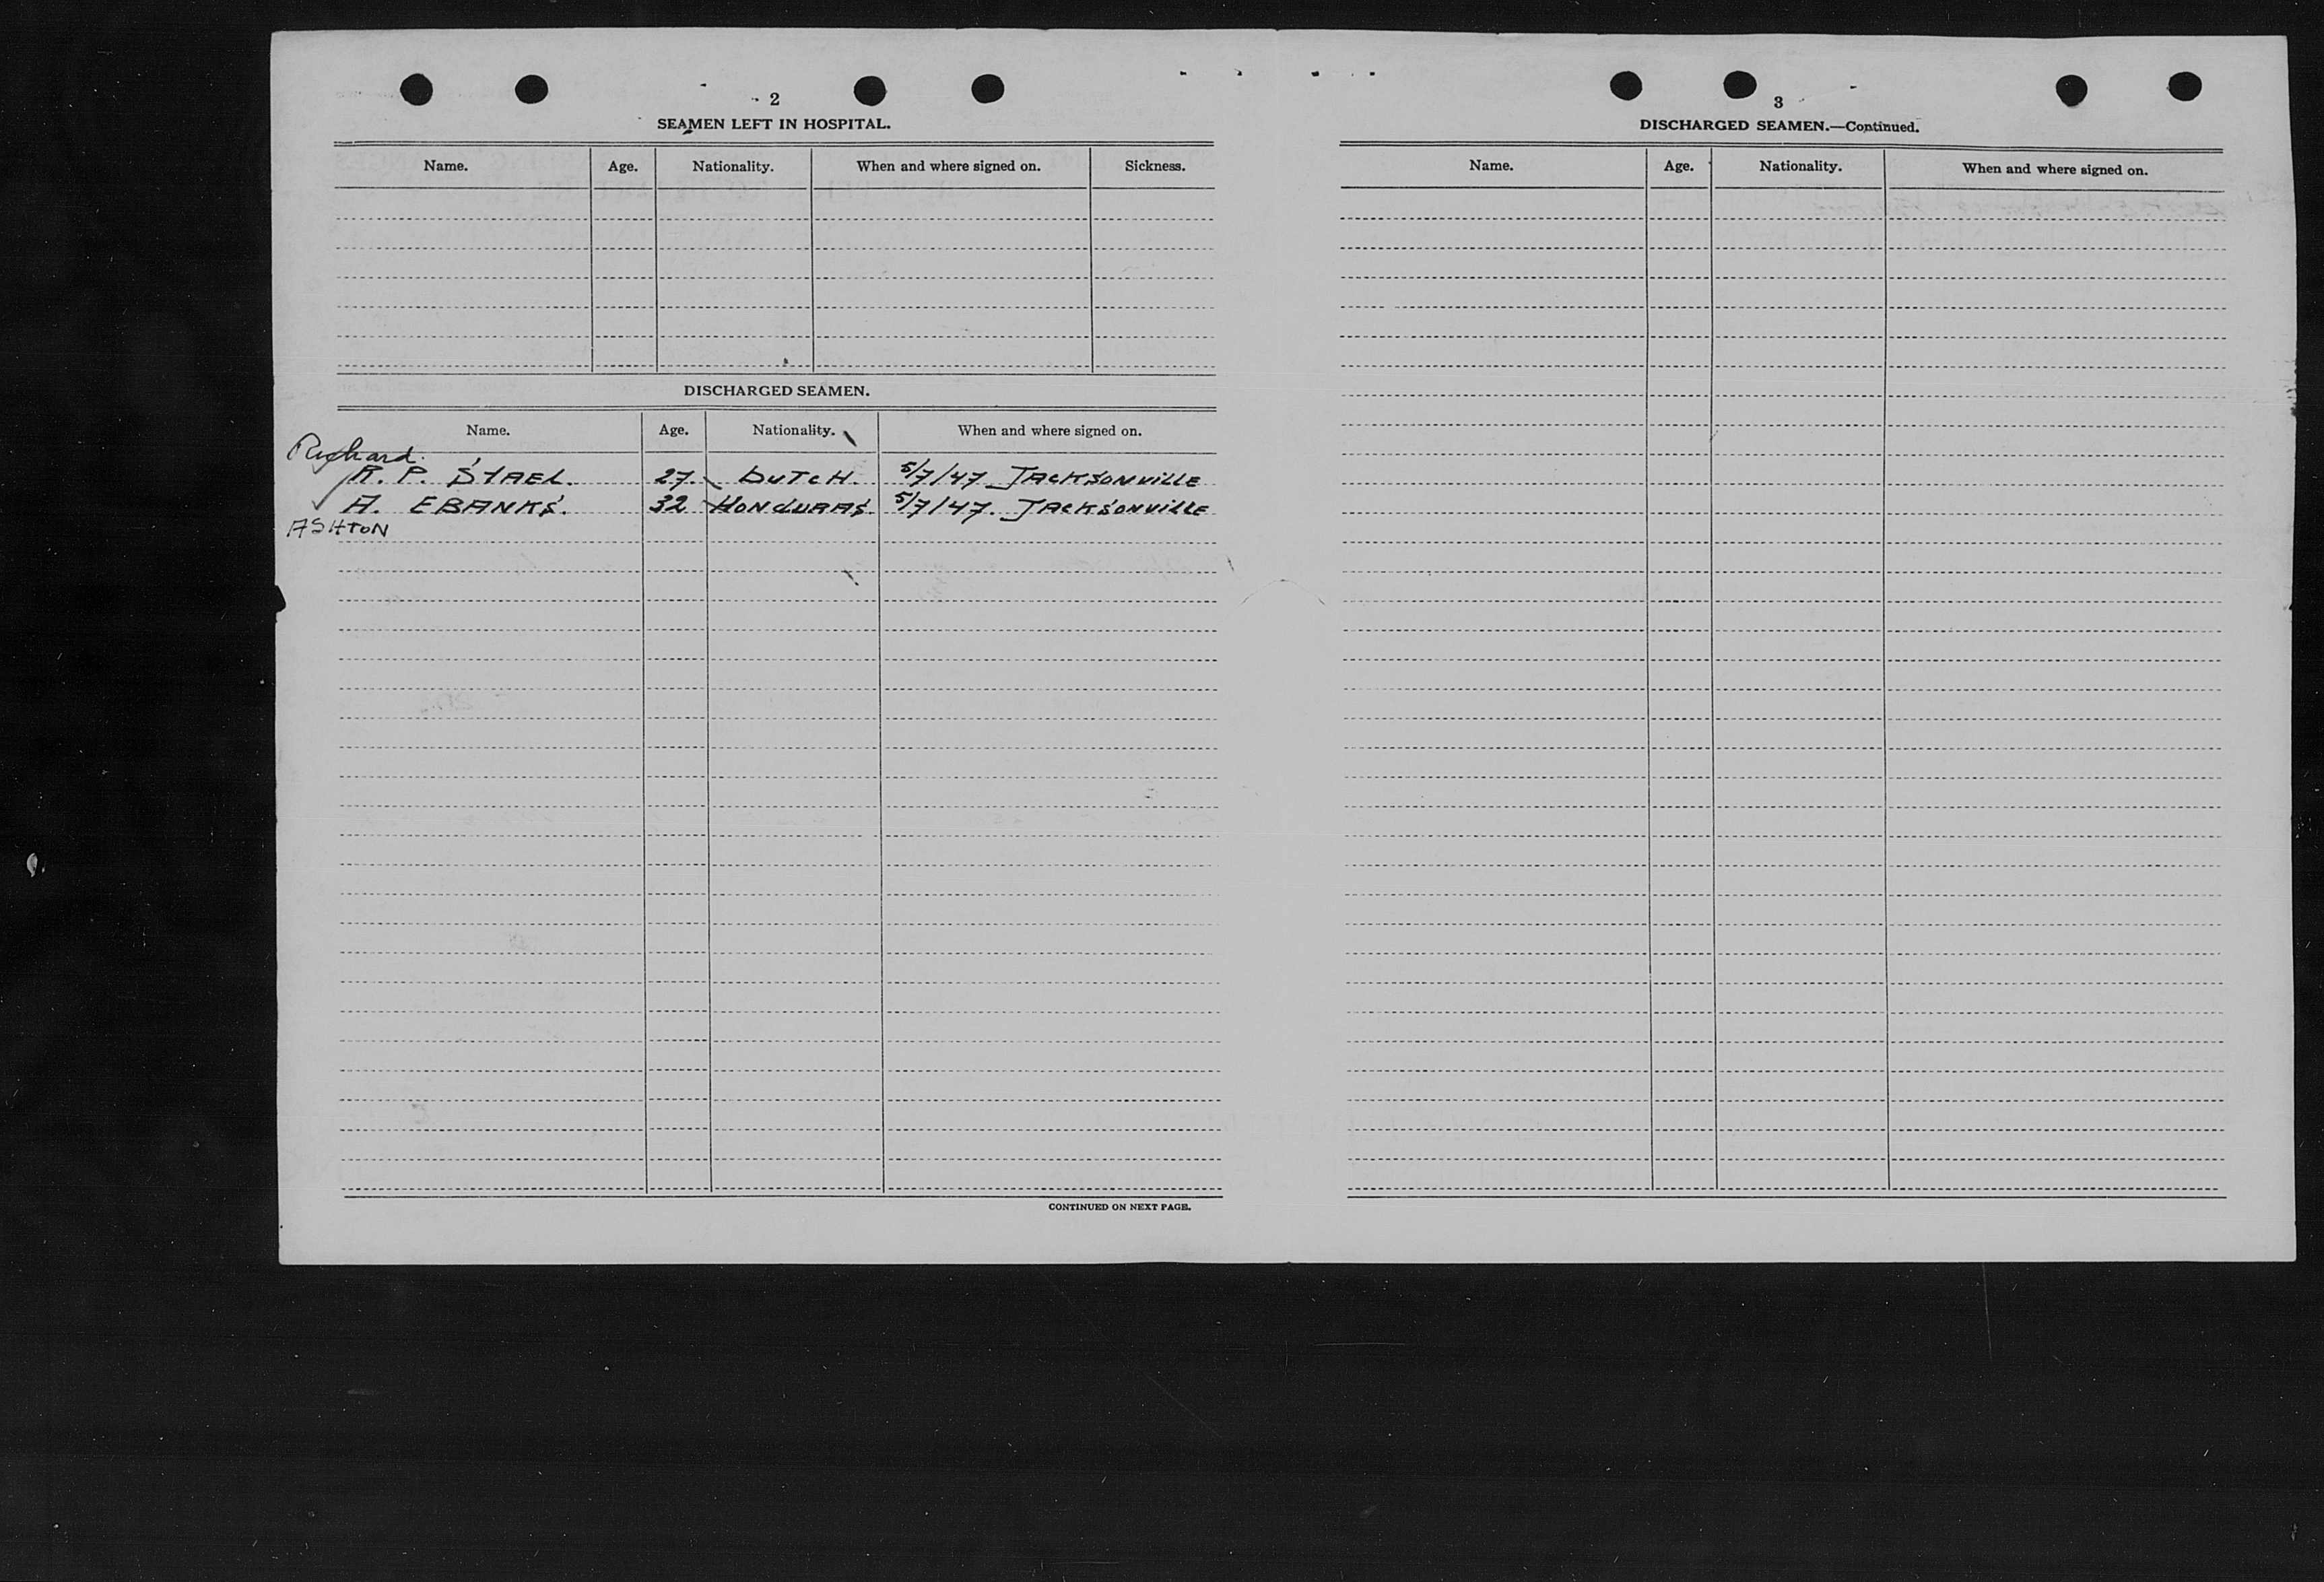 2
SEAMEN LEFT IN HOSPITAL.
Name. Age. Nationality. When and where signed on. Sickness.
DISCHARGED SEAMEN.
Name. Age. Nationality. When and where signed on.
Richard
R. P. STAEL. 27. DUTCH. 5/7/47 JACKSONVILLE
A. EBANKS. 32 HONDURAS 5/7/47. JACKSONVILLE
ASHTON
CONTINUED ON NEXT PAGE.
3
DISCHARGED SEAMEN.—Continued.
Name. Age. Nationality. When and where signed on.